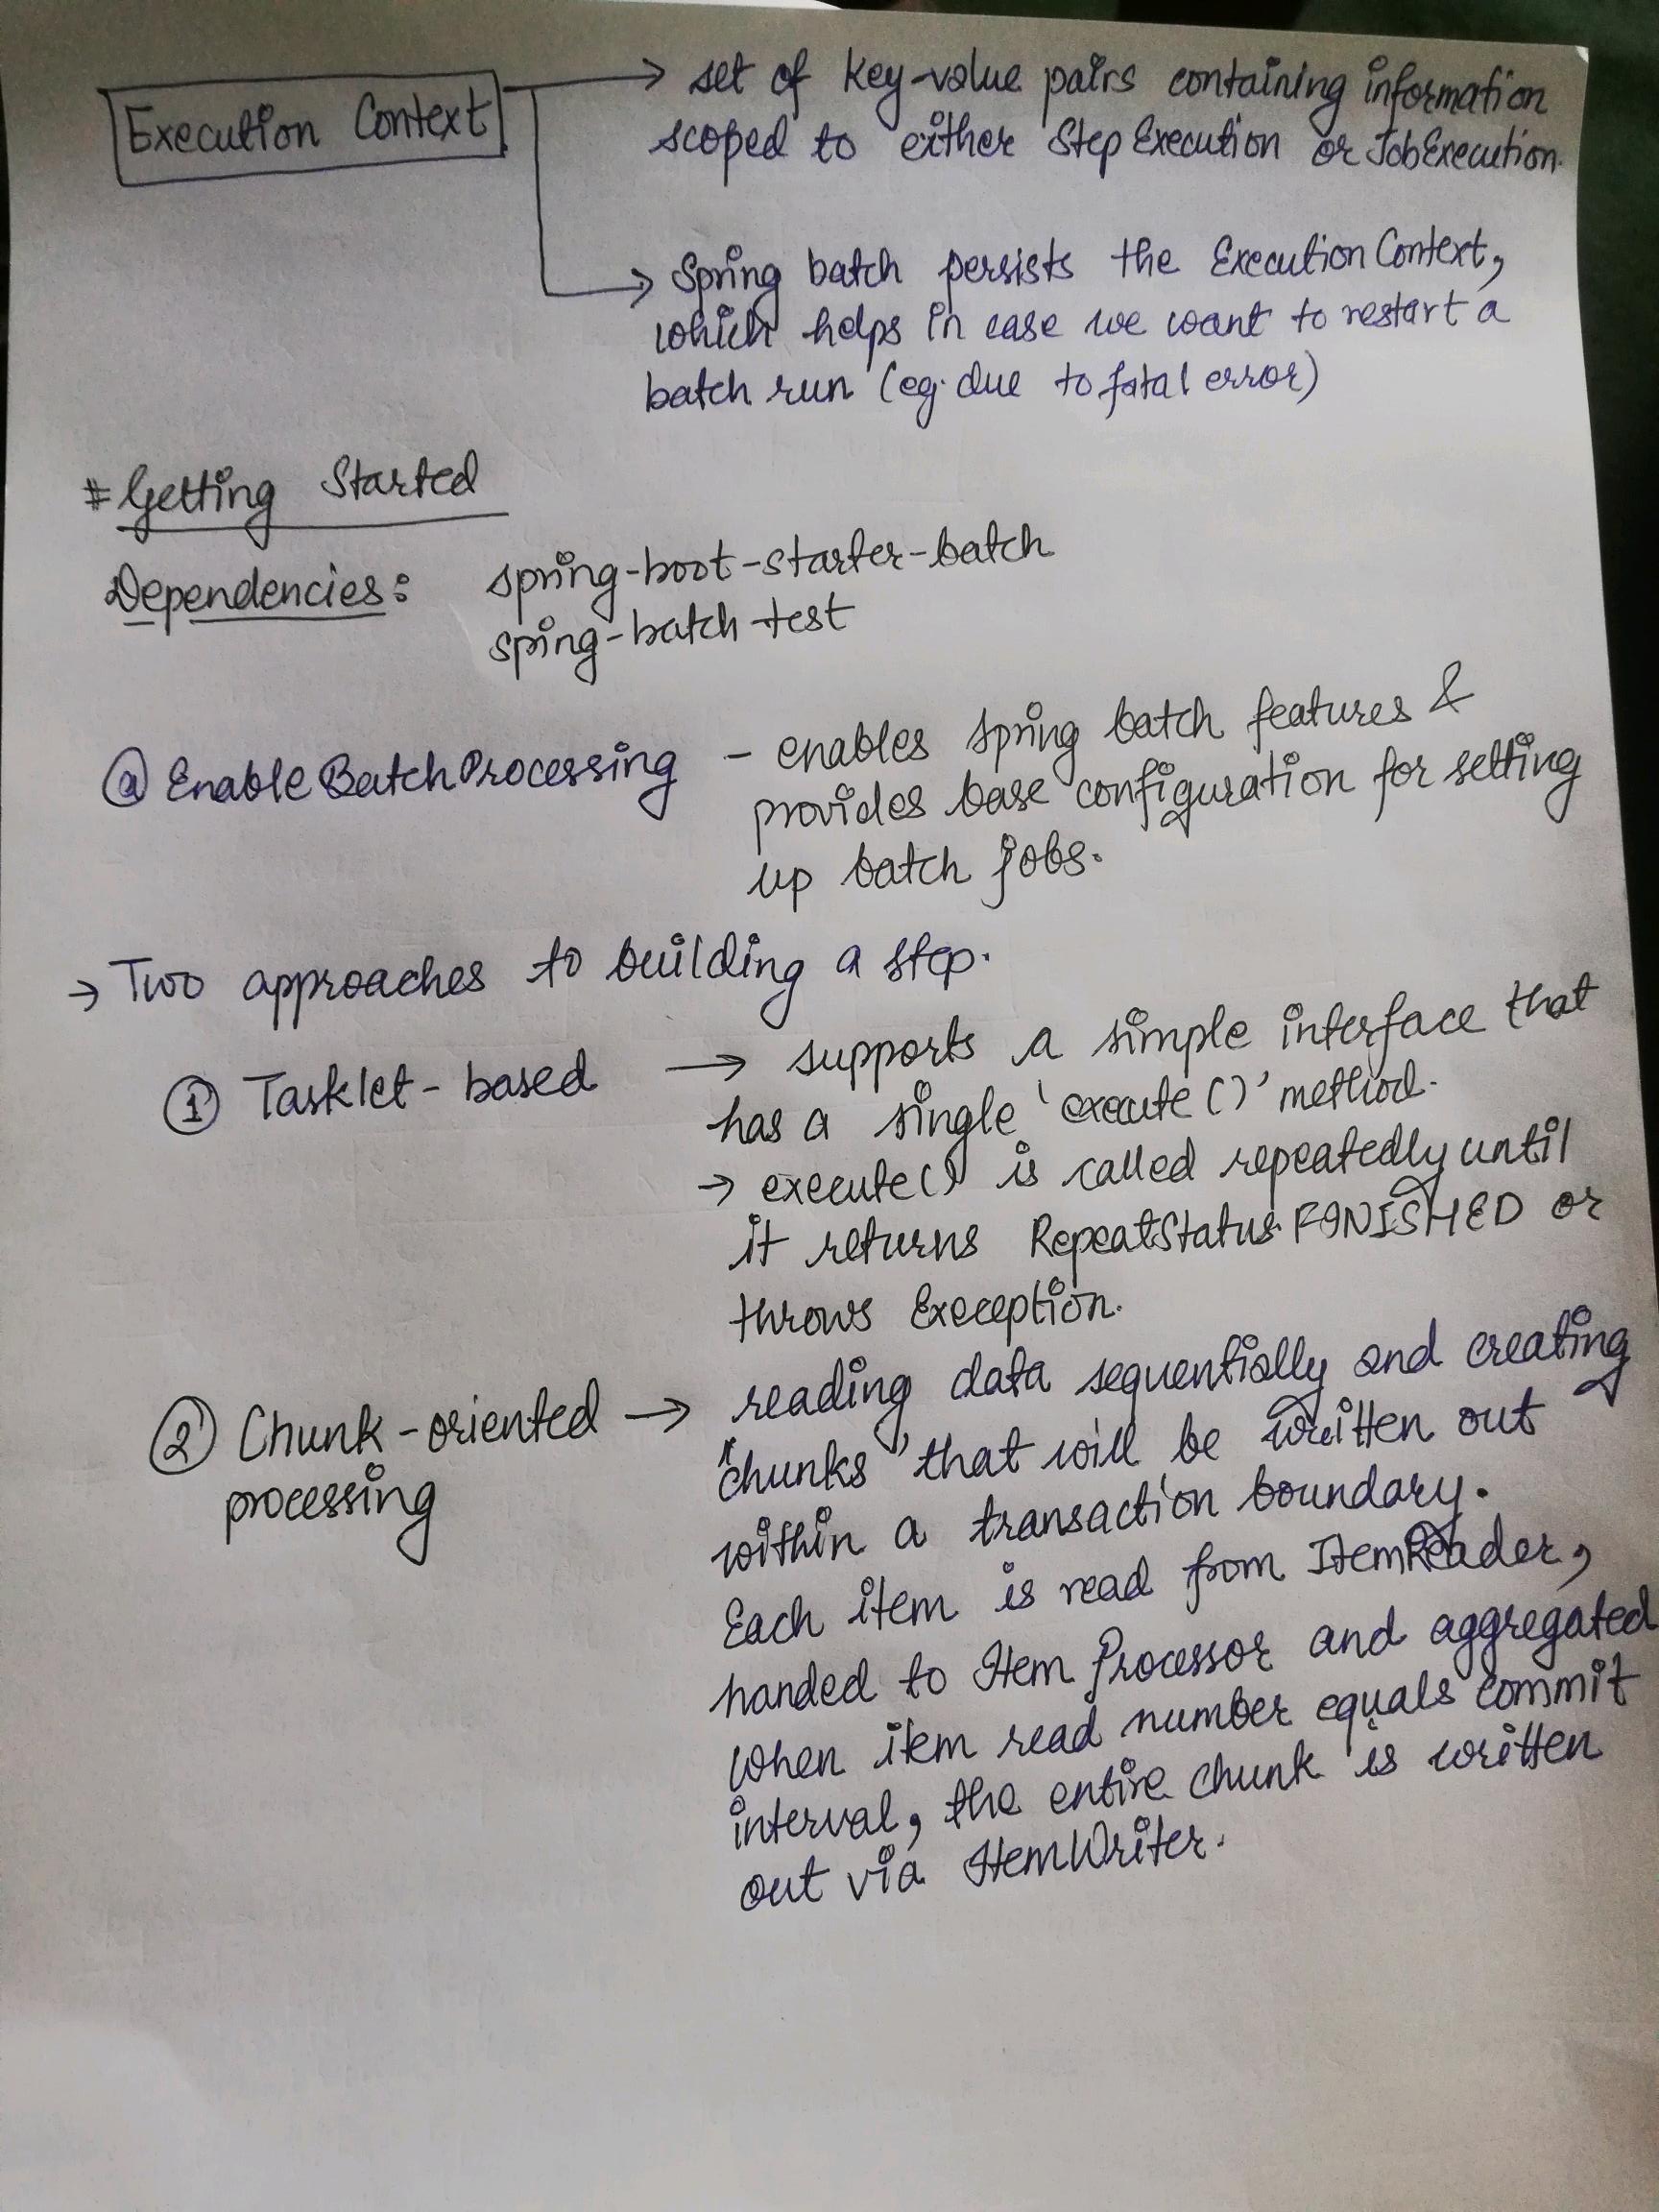 Execution Context → set of key-value pairs containing information
scoped to either StepExecution or JobExecution.
→ Spring batch persists the ExecutionContext,
which helps in case we want to restart a
batch run (eg. due to fatal error)
# Getting Started
Dependencies: spring-boot-starter-batch
spring-batch-test
@EnableBatchProcessing - enables spring batch features &
provides base configuration for setting
up batch jobs.
→ Two approaches to building a step.
① Tasklet-based → supports a simple interface that
has a single 'execute()' method.
→ execute() is called repeatedly until
it returns RepeatStatus.FINISHED or
throws Exception.
② Chunk-oriented → reading data sequentially and creating
processing "chunks" that will be written out
within a transaction boundary.
Each item is read from ItemReader,
handed to ItemProcessor and aggregated
when item read number equals commit
interval, the entire chunk is written
out via ItemWriter.